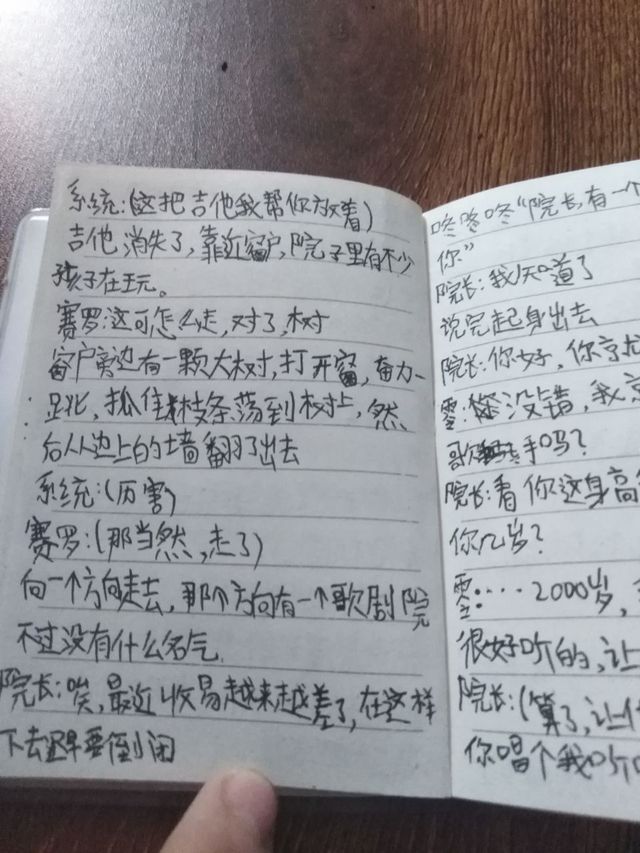 系统:(这把吉他我帮你放着)
吉他消失了,靠近窗户,院子里有不少
孩子在玩。
赛罗:这可怎么走,对了,树
窗户旁边有一颗大树,打开窗,奋力一
跳,抓住树枝条荡到树上,然
后从边上的墙翻了出去
系统:(厉害)
赛罗:(那当然,走了)
向一个方向走去,那个方向有一个歌剧院
不过没有什么名气
院长:唉,最近收易越来越差了,在这样
下去迟早要倒闭
咚咚咚“院长,有一个
你”
院长:我知道了
说完起身出去
院长:你好,你
零:没错,我
歌手吗?
院长:看你这身高
你几岁?
零:····2000岁,
很好听的,让
院长:(算了,让
你唱个我听